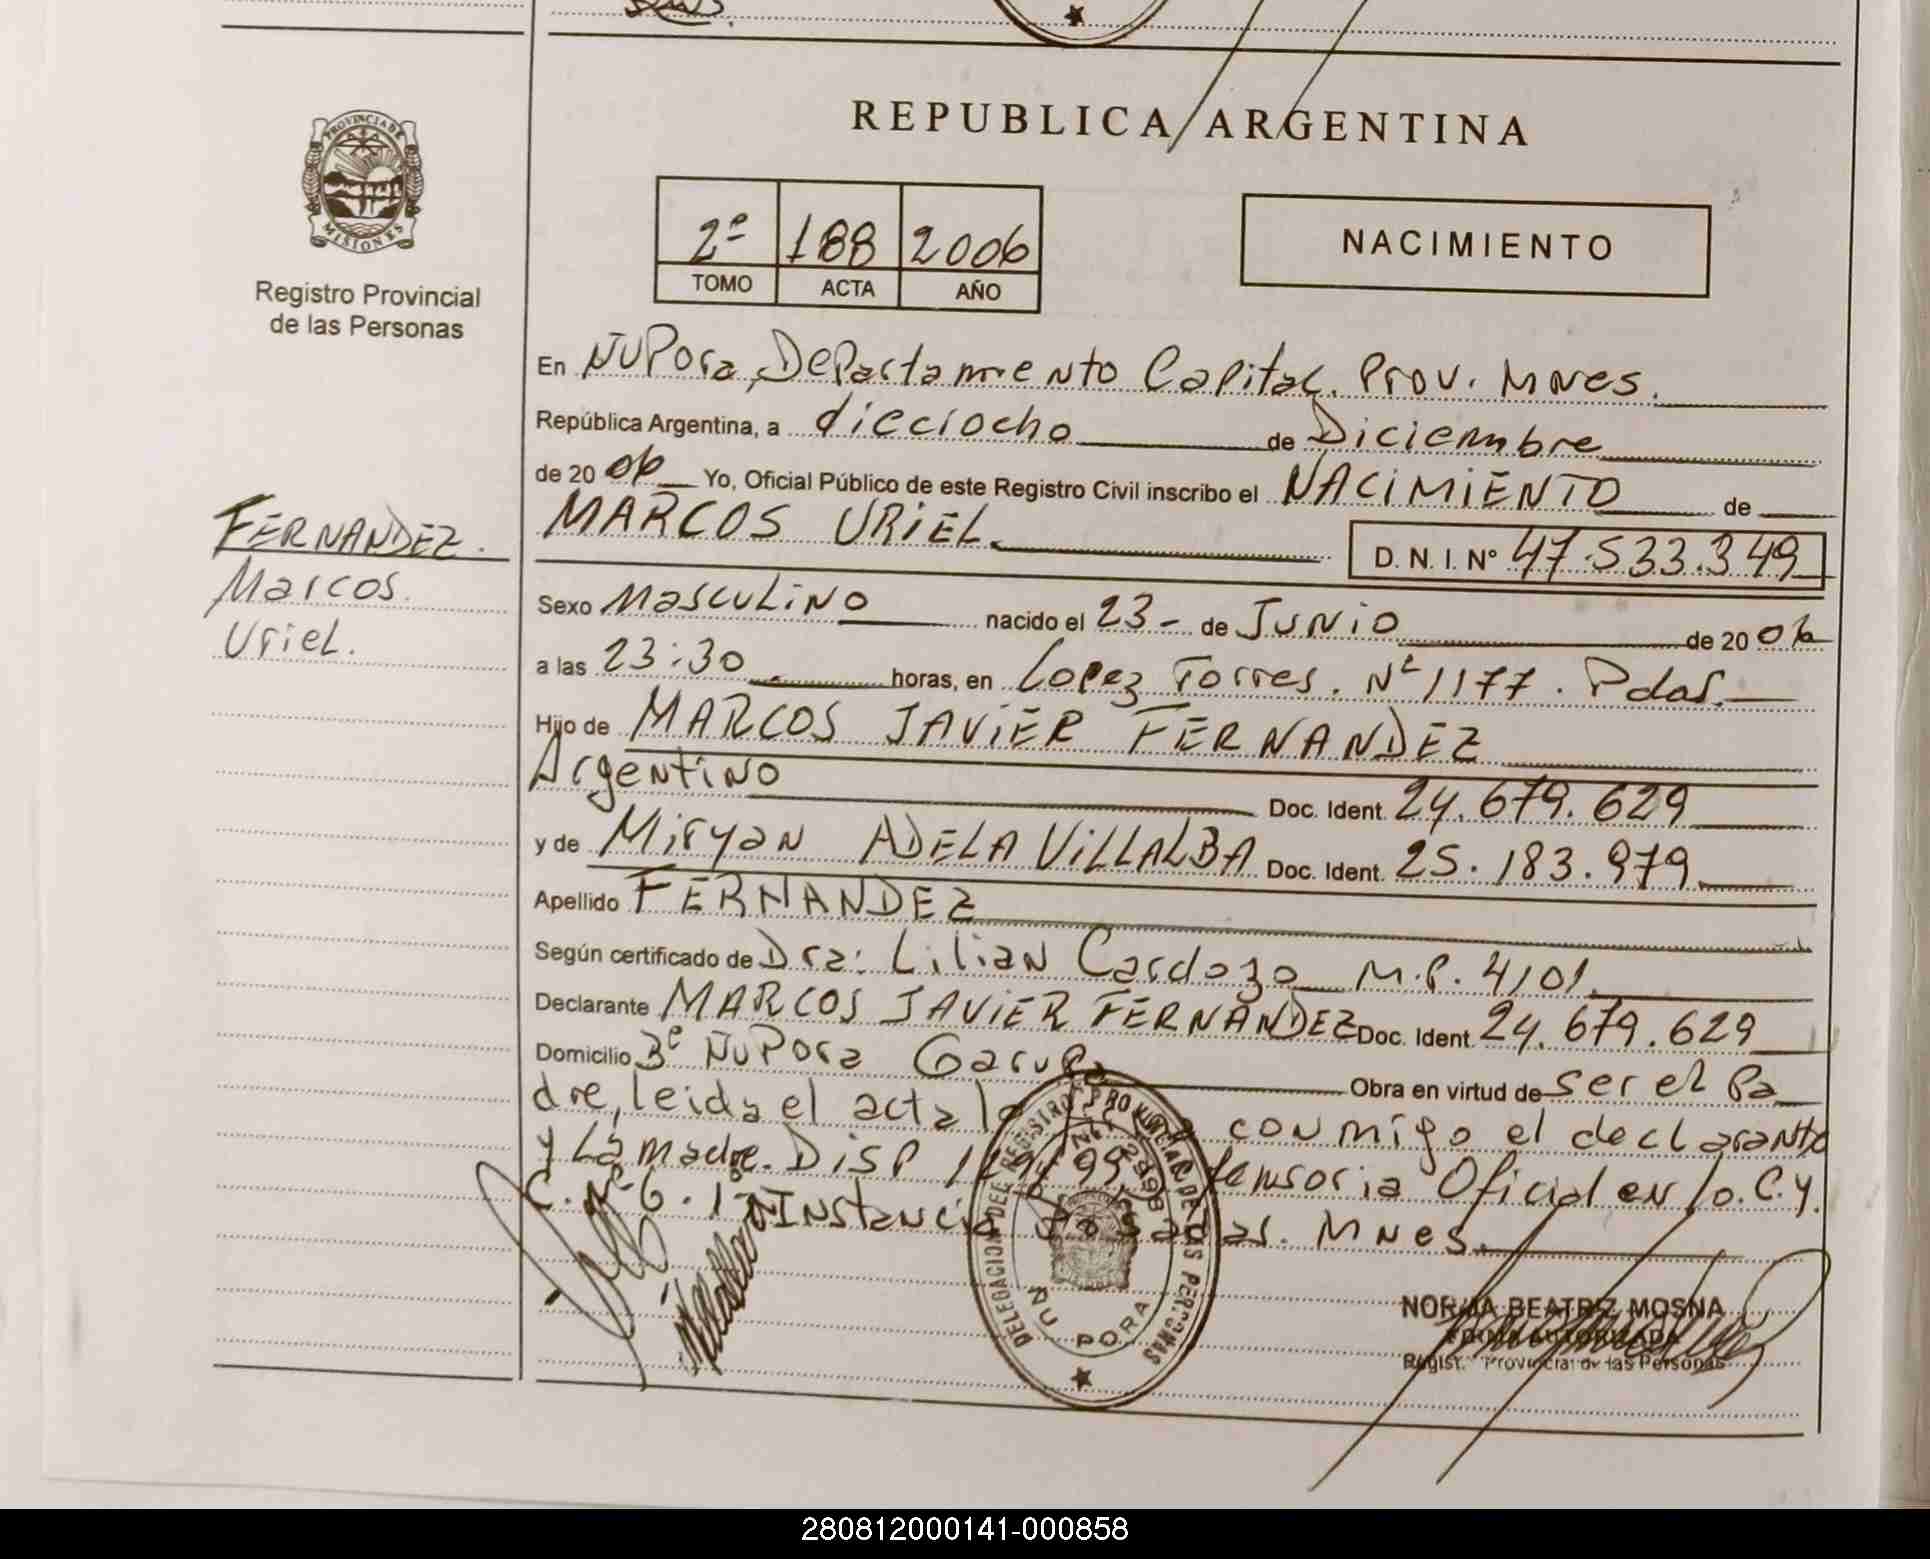 REPUBLICA ARGENTINA
PROVINCIA DE
MISIONES
Registro Provincial
de las Personas
2º 188 2006
TOMO ACTA AÑO
NACIMIENTO
En ÑUPora, Departamento Capital. Prov. Mnes.
República Argentina, a dieciocho de Diciembre
de 2006 Yo, Oficial Público de este Registro Civil inscribo el NACIMIENTO de
MARCOS URIEL. D. N. I. Nº 47.533.349
FERNANDEZ.
Marcos.
Uriel.
Sexo Masculino nacido el 23 - de Junio de 2006
a las 23:30 horas, en Lopez Torres. Nº 1177. Pdas.
Hijo de MARCOS JAVIER FERNANDEZ
Argentino Doc. Ident. 24.679.629
y de Miryan ADELA VILLALBA Doc. Ident. 25.183.979
Apellido FERNANDEZ
Según certificado de Dra: Lilian Cardozo M.P. 4101.
Declarante MARCOS JAVIER FERNANDEZ Doc. Ident. 24.679.629
Domicilio 3º ÑUPora Garupa Obra en virtud de ser el Pa
dre, leida el acta la conmigo el declarante
y La madre. DISP Defensoria Oficial en lo. C. y.
C. Nº 6. 1º Instancia Posadas. Mnes.
DELEGACION DEL REGISTRO PROVINCIAL DE LAS PERSONAS
ÑU PORA
NORMA BEATRIZ MOSNA
FIRMA AUTORIZADA
Regist. Provincial de las Personas
280812000141-000858